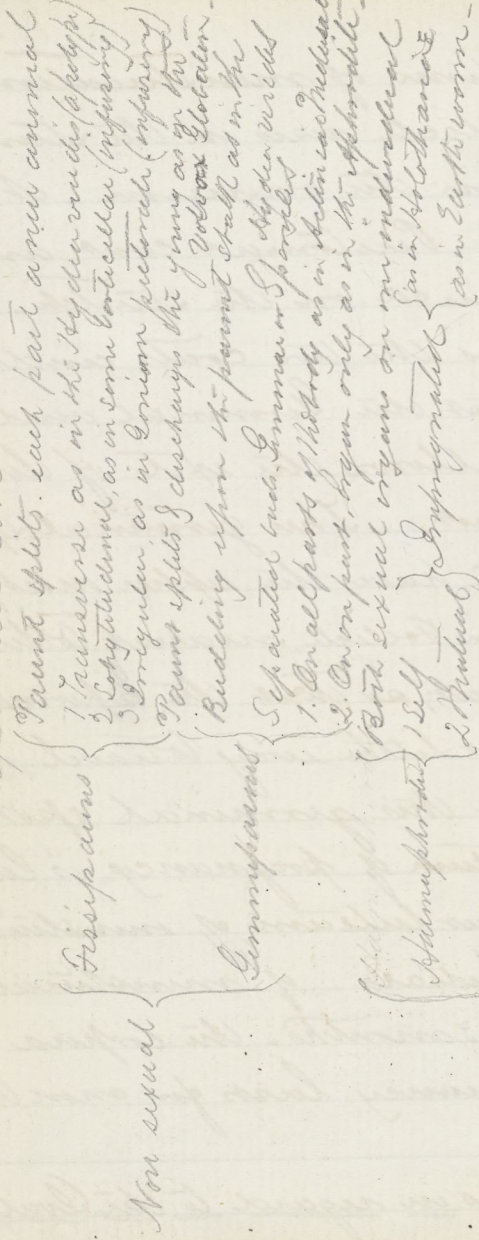 Non sexual
Fissiparus
Parent splits. each part a new animal
1 Transverse as in the Hydra viridis (a polype)
2 Longitudinal, as in some Vorticellai (infusing)
3 Irregular as in Gonium pectorale (infusing)
Parent splits & discharges the young as in the
Volvox Globaton-
Gemmiparus
Budding upon the parent stalk as in the
Hydra viridis
Separated buds Gemmae or Sporules
1. On all parts of the body as in Actinia & Medusae
2. On one part, organ only as in the Aphrodite-
Haemaphrodite
Both sexual organs on one individual
1 Self
2 Mutual
Impregnated
as in Holothuriae
as in Earth worm-